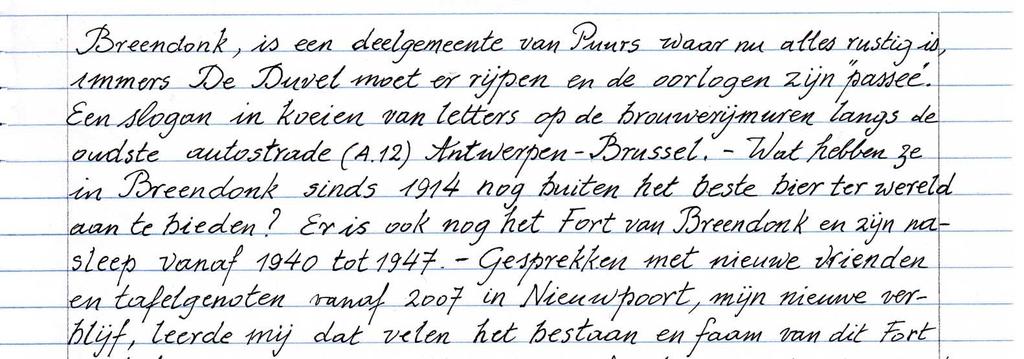 Breendonk, is een deelgemeente van Puurs waar nu alles rustig is,
immers De Duvel moet er rijpen en de oorlogen zijn "passeé".
Een slogan in koeien van letters op de brouwerijmuren langs de
oudste autostrade (A.12) Antwerpen-Brussel. - Wat hebben ze
in Breendonk sinds 1914 nog buiten het beste bier ter wereld
aan te bieden? Er is ook nog het Fort van Breendonk en zijn na-
sleep vanaf 1940 tot 1947. - Gesprekken met nieuwe vrienden
en tafelgenoten vanaf 2007 in Nieuwpoort, mijn nieuwe ver-
blijf, leerde mij dat velen het bestaan en faam van dit Fort